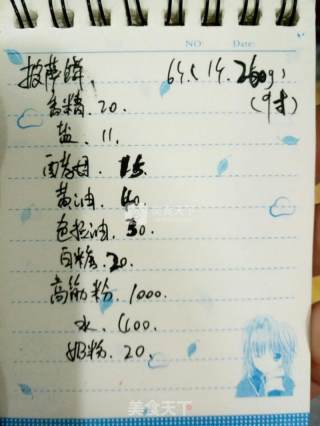 NO: Date:
披萨饼. 6个(14. 260g)
(9寸)
香精. 20.
盐. 11.
面芬母. 15.
黄油. 40.
色拉油. 30.
白糖. 20.
高筋粉. 1000.
水. 400.
奶粉. 20.
美食天下